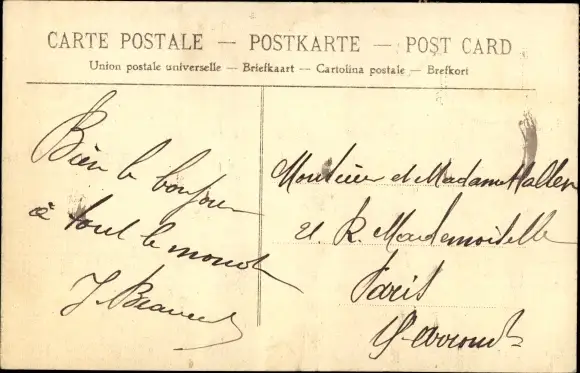 CARTE POSTALE — POSTKARTE — POST CARD
Union postale universelle — Briefkaart — Cartolina postale — Brefkort
Bien le bonjour
à tout le monde
J.
Monsieur et Madame
21. R. Mademoiselle
Paris